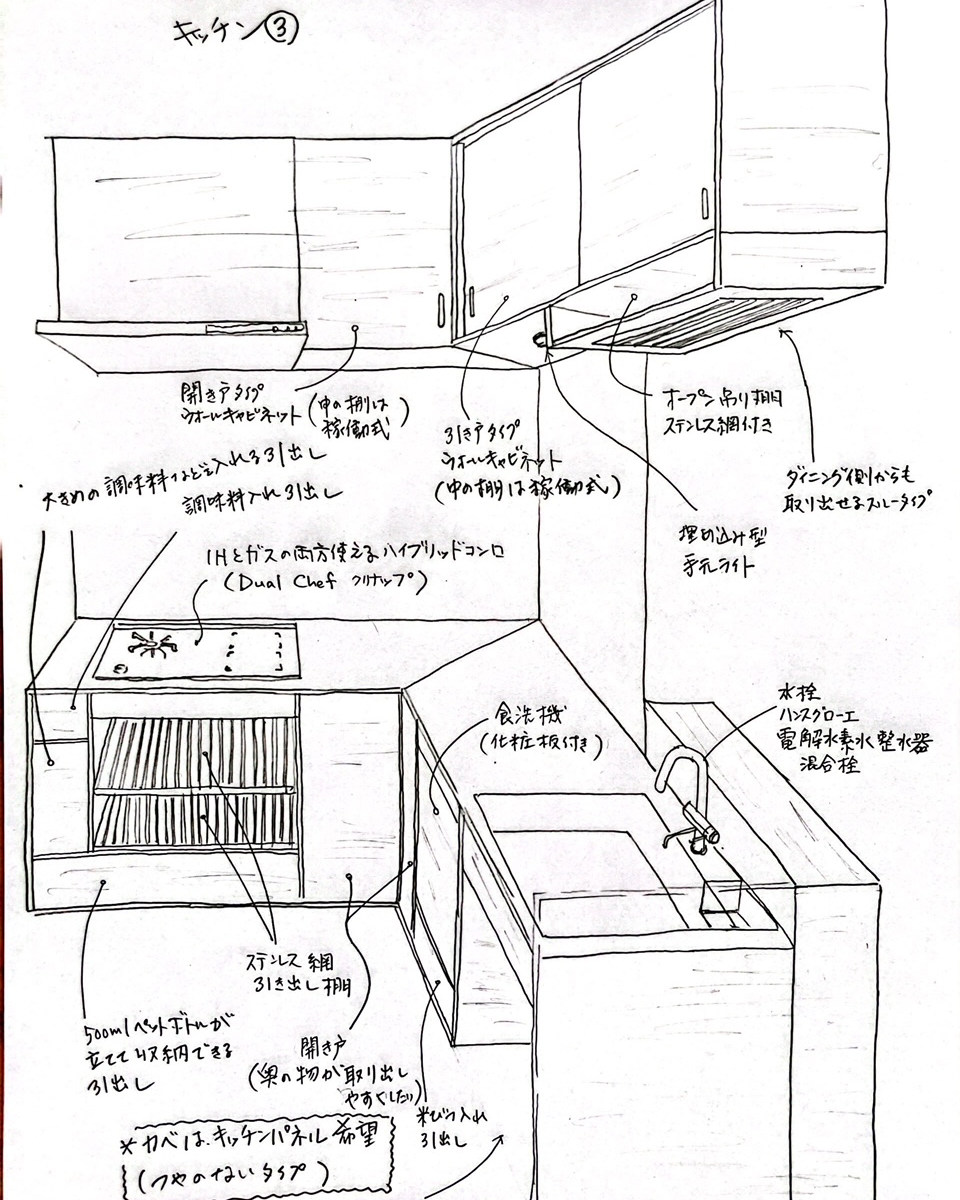 キッチン③
開き戸タイプ
ウォールキャビネット(中の棚は
稼働式)
引き戸タイプ
ウォールキャビネット
(中の棚は稼働式)
オープン吊り棚
ステンレス網付き
ダイニング側からも
取り出せるスルータイプ
埋め込み型
手元ライト
大きめの調味料などを入れる引出し
調味料入れ引出し
IHとガスの両方使えるハイブリッドコンロ
(Dual Chef クリナップ)
食洗機
(化粧板付き)
水栓
ハンスグローエ
電解水素水整水器
混合栓
ステンレス網
引き出し棚
500mlペットボトルが
立てて収納できる
引出し
開き戸
(奥の物が取り出し
やすくしたい)
米びつ入れ
引出し
*カベは、キッチンパネル希望
(つやのないタイプ)